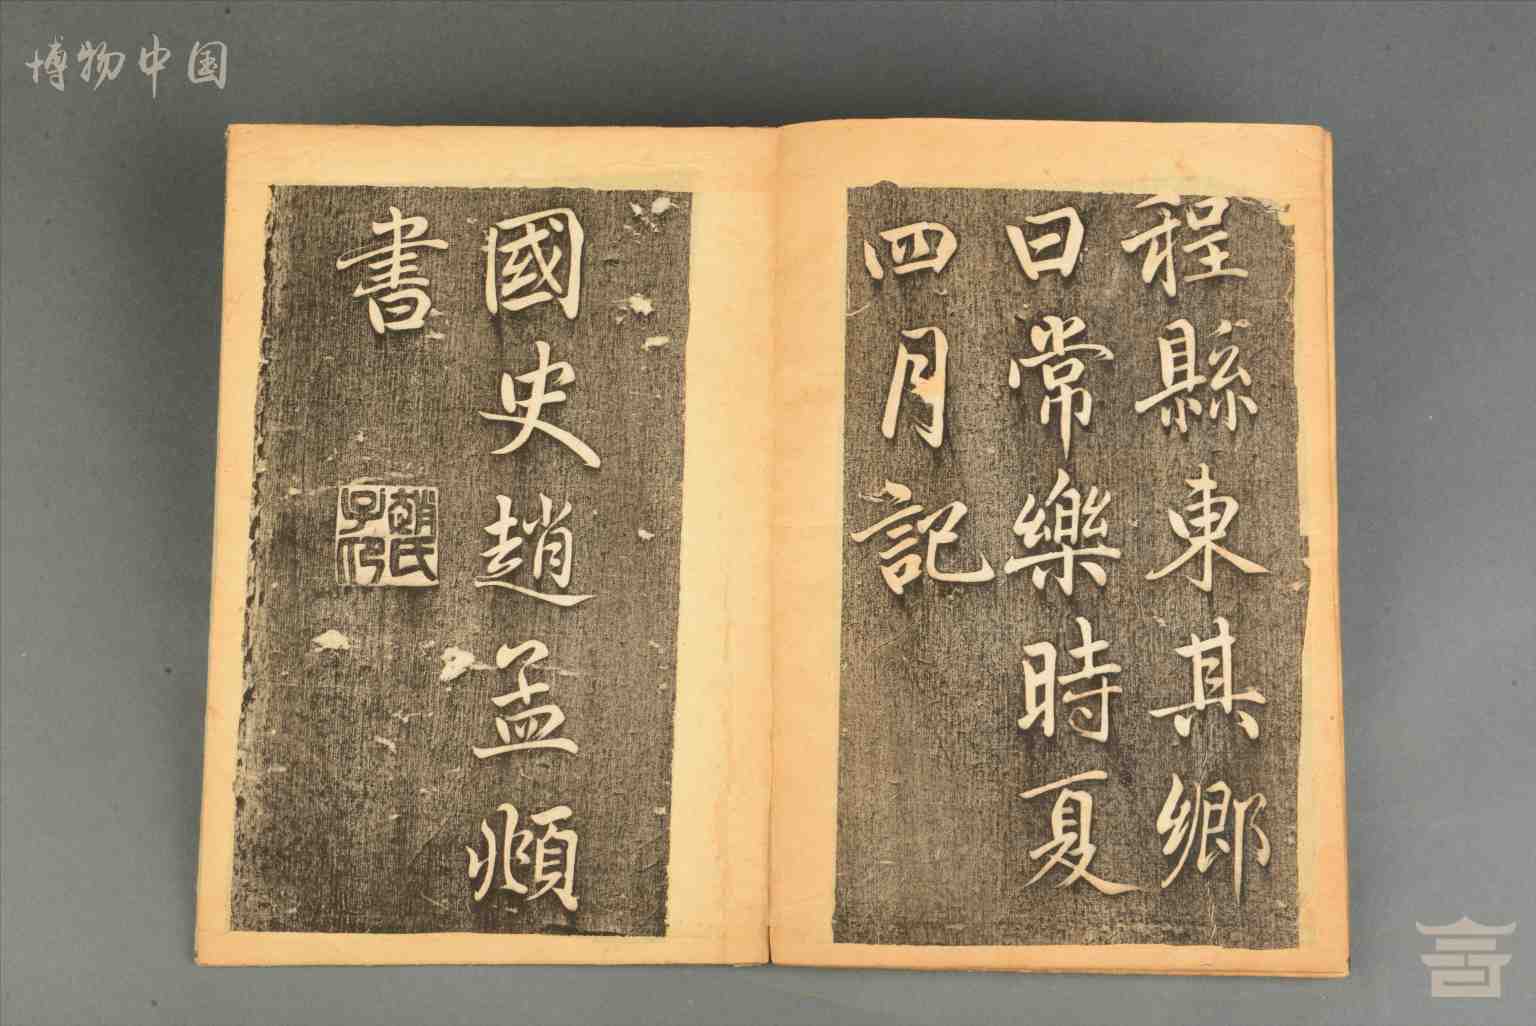 博物中国
程縣東其鄉
日常樂時夏
四月記
國史趙孟頫
書
趙氏
子印